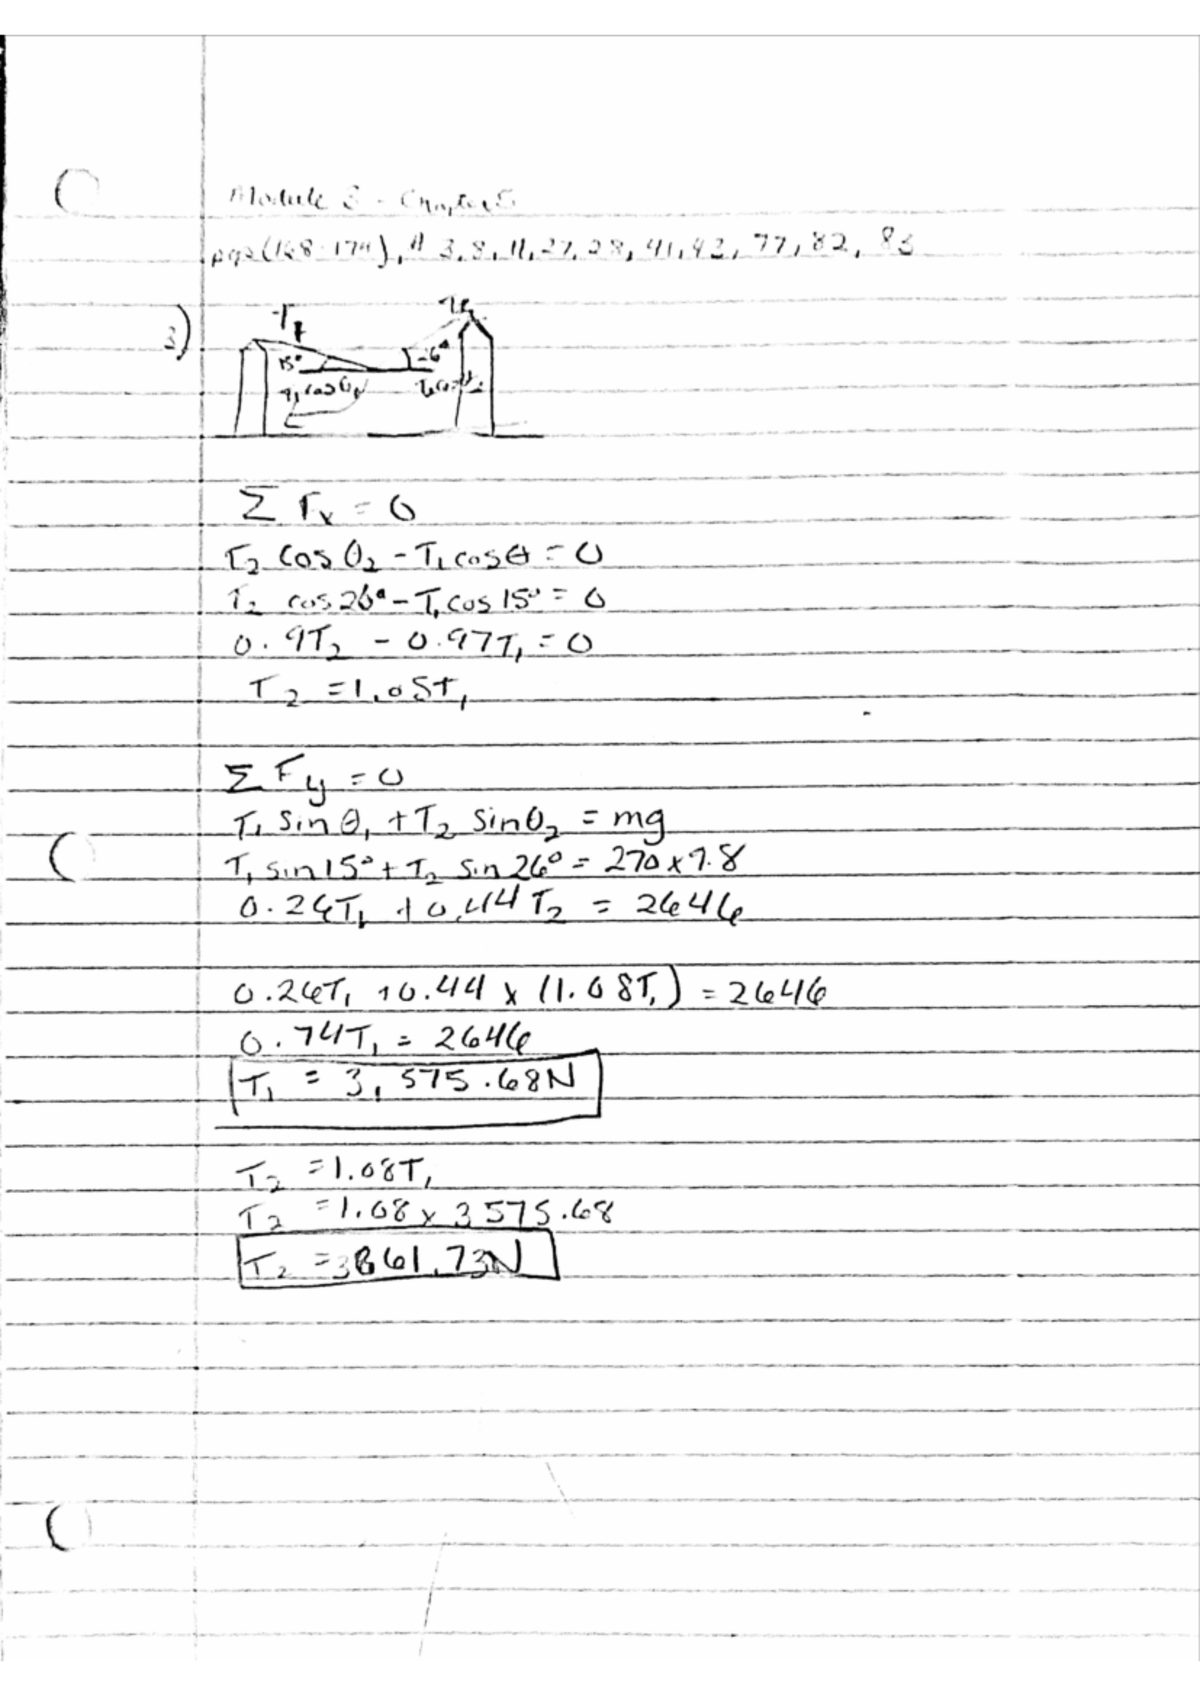 Module 3 - Chapter 5
pgs (168-174), # 3, 8, 11, 27, 28, 41, 43, 77, 82, 83
3)
T₁
15°
T₁ cos θ₁
Σ Fx = 0
T₂ cos θ₂ - T₁ cos θ = 0
T₂ cos 26° - T₁ cos 15° = 0
0.9T₂ - 0.97T₁ = 0
T₂ = 1.08T₁
Σ Fy = 0
T₁ sin θ₁ + T₂ sin θ₂ = mg
T₁ sin 15° + T₂ sin 26° = 270 x 9.8
0.26T₁ + 0.44 T₂ = 2646
0.26T₁ + 0.44 x (1.08T₁) = 2646
0.74T₁ = 2646
T₁ = 3,575.68N
T₂ = 1.08T₁
T₂ = 1.08 x 3575.68
T₂ = 3861.73N